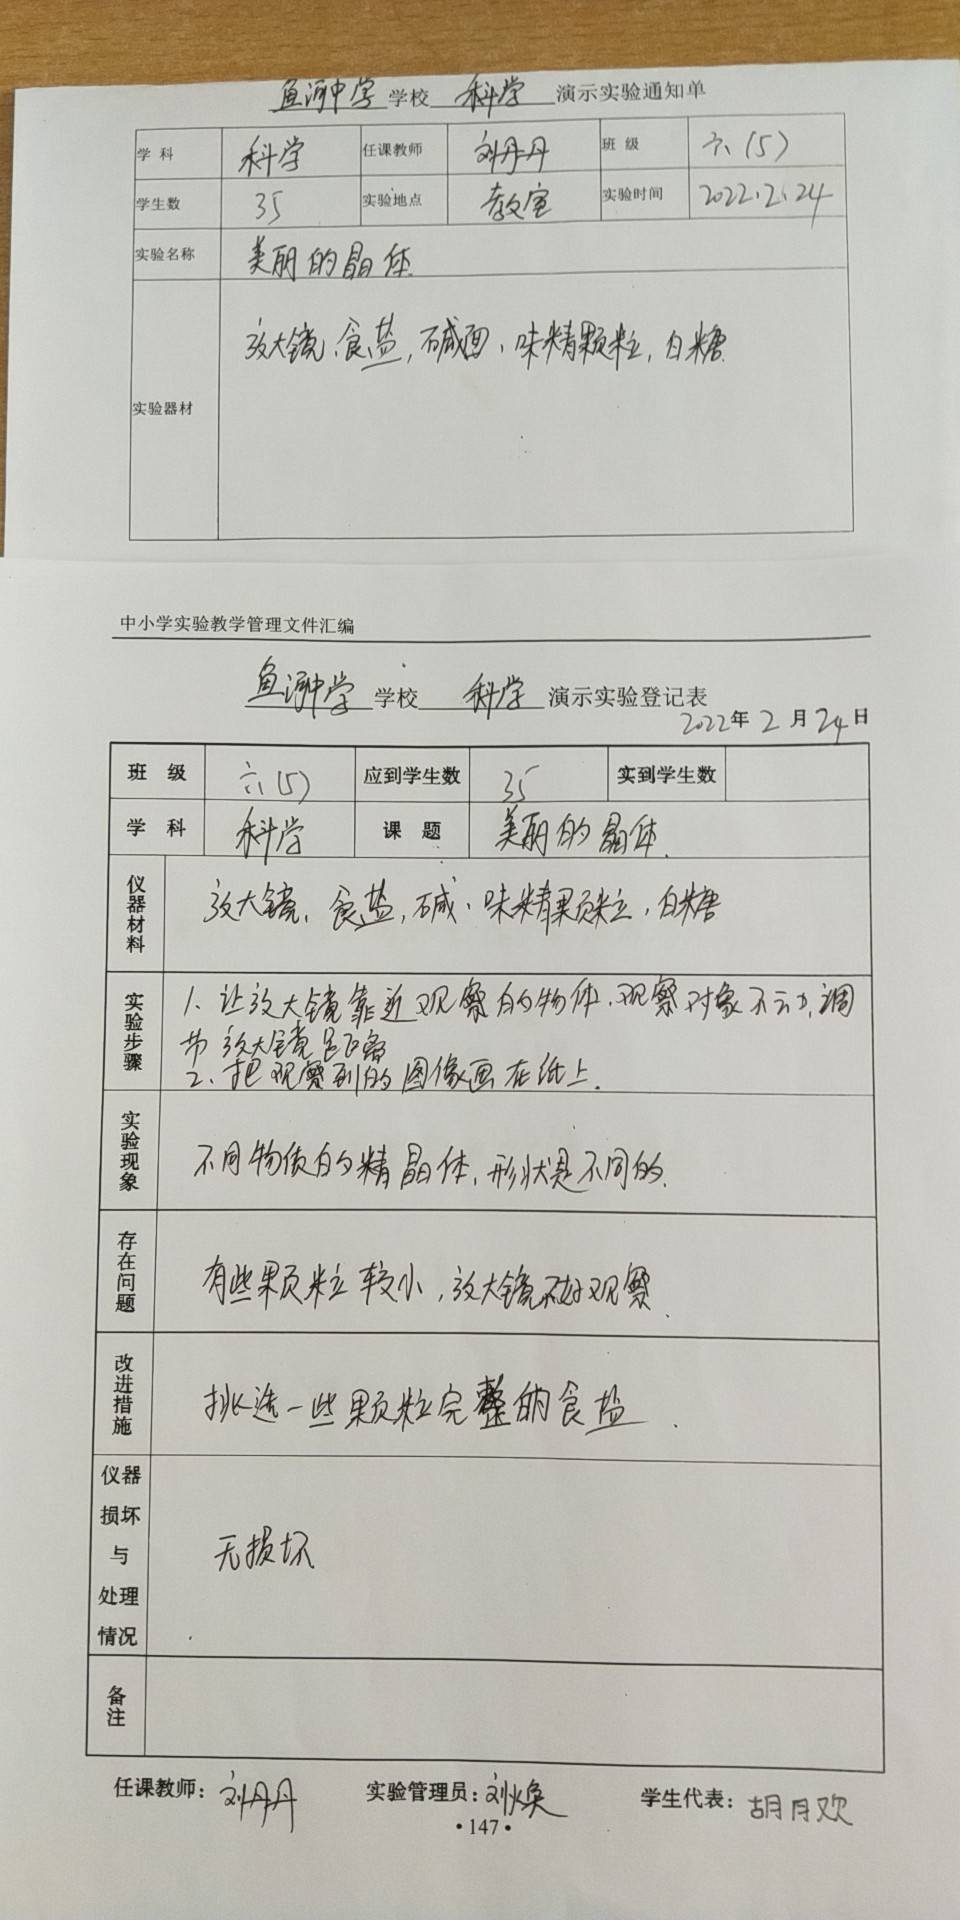 鱼河中学 学校 科学 演示实验通知单
学 科 科学 任课教师 刘丹丹 班 级 六(5)
学生数 35 实验地点 教室 实验时间 2022.2.24
实验名称 美丽的晶体
实验器材 放大镜、食盐,碱面、味精颗粒,白糖
中小学实验教学管理文件汇编
鱼河中学 学校 科学 演示实验登记表
2022年2月24日
班 级 六(5) 应到学生数 35 实到学生数
学 科 科学 课 题 美丽的晶体.
仪器材料 放大镜、食盐,碱、味精颗粒,白糖
实验步骤 1、让放大镜靠近观察的物体.观察对象不动,调
节放大镜距离
2、把观察到的图像画在纸上.
实验现象 不同物质的精晶体,形状是不同的.
存在问题 有些颗粒较小,放大镜不好观察.
改进措施 挑选一些颗粒完整的食盐.
仪器
损坏
与
处理
情况
无损坏
备注
任课教师:刘丹丹 实验管理员:刘焕 学生代表:胡月欢
·147·